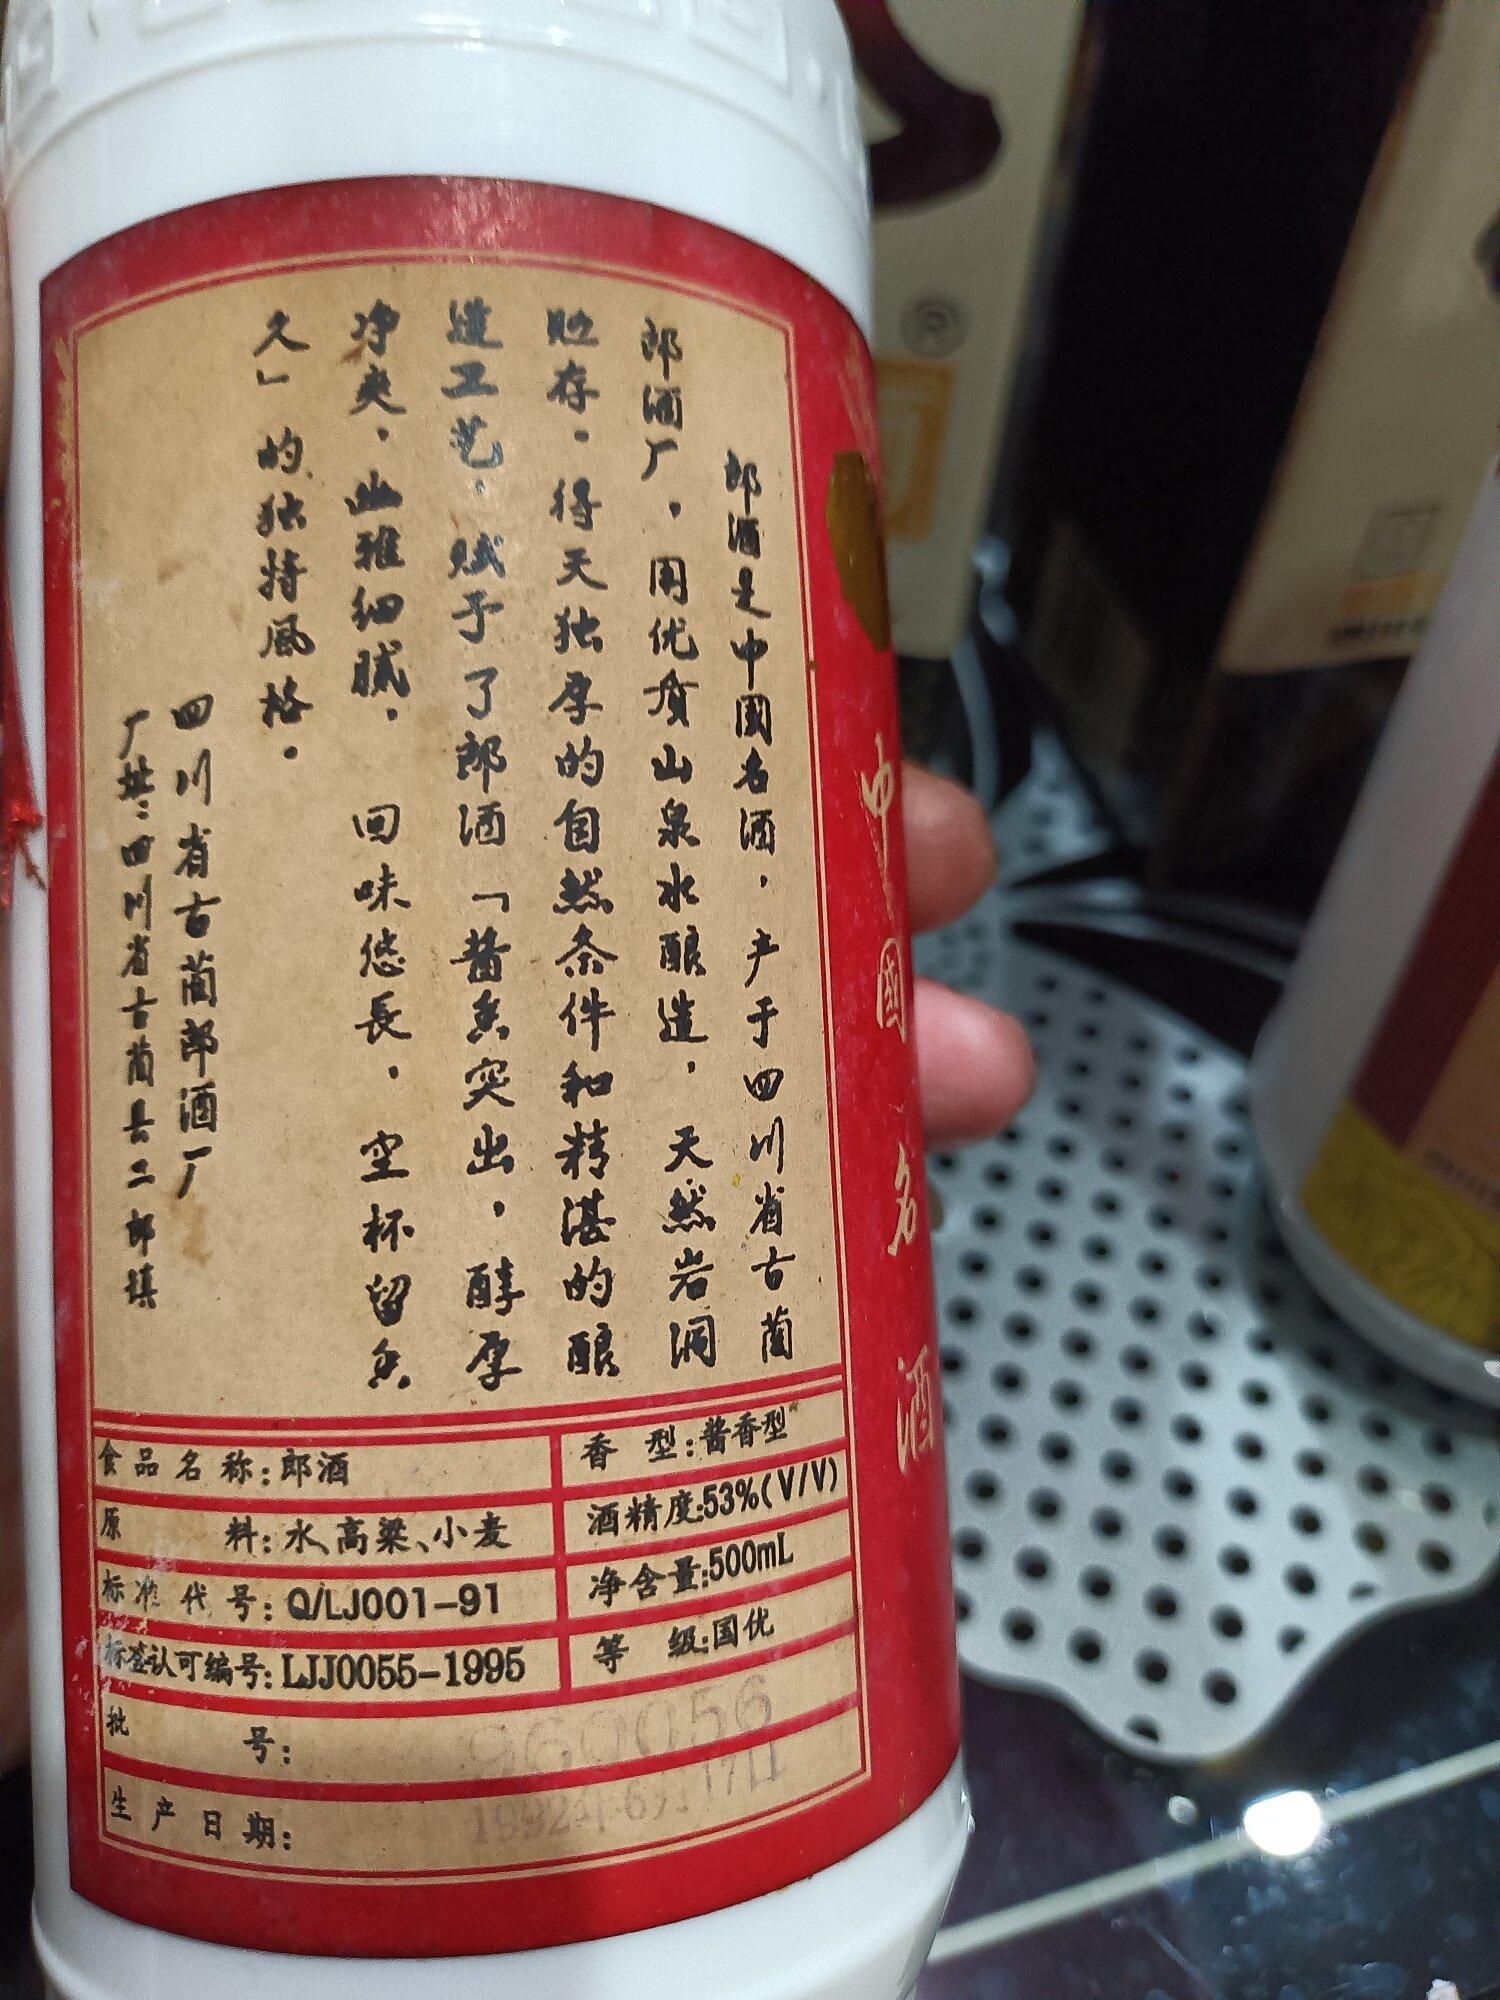 郎酒是中國名酒，产于四川省古蔺
郎酒厂，用优质山泉水酿造，天然岩洞
贮存。得天独厚的自然条件和精湛的酿
造工艺，赋予了郎酒「酱香突出，醇厚
净爽，幽雅细腻，回味悠長，空杯留香
久」的独特風格。
四川省古蔺郎酒厂
厂址：四川省古蔺县二郎镇
食品名称：郎酒
香 型：酱香型
原 料：水、高粱、小麦
酒精度：53%(V/V)
标准代号：Q/LJ001-91
净含量：500mL
标签认可编号：LJJ0055-1995
等 级：国优
批 号：960056
生产日期：
中國名酒